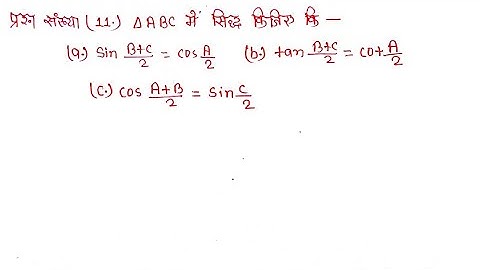 प्रश्न संख्या (11.) △ABC में सिद्ध किजिए कि —
(a.) sin \frac{B+C}{2} = cos \frac{A}{2} (b.) tan \frac{B+C}{2} = cot \frac{A}{2}
(C.) cos \frac{A+B}{2} = sin \frac{C}{2}